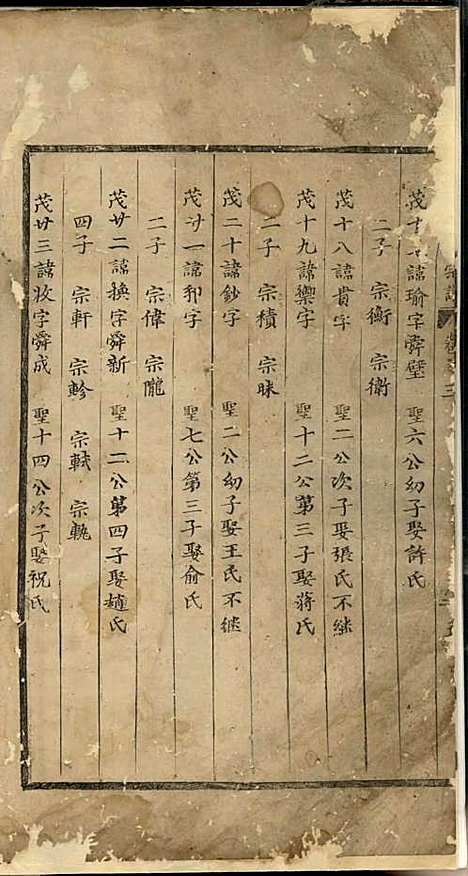 宗譜 卷之三
茂十 諱瑜字舜璧 聖六公幼子娶許氏
二子 宗衡 宗衛
茂十八諱貴字 聖二公次子娶張氏不継
茂十九諱樂字 聖十二公第三子娶蔣氏
二子 宗積 宗昧
茂二十諱鈔字 聖二公幼子娶王氏不継
茂廿一諱和字 聖七公第三子娶俞氏
二子 宗偉 宗隴
茂廿二諱換字舜新 聖十二公第四子娶趙氏
四子 宗軒 宗軫 宗軾 宗軏
茂廿三諱收字舜成 聖十四公次子娶祝氏